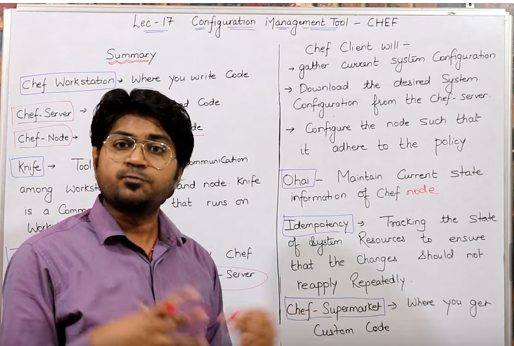 Lec-17 Configuration Management Tool - CHEF
Summary
Chef Workstation → Where you write Code
Chef-Server → Code
Chef-Node →
Knife → Tool
among and node Knife
is a that runs on
Chef
- Server
Chef Client will :-
→ gather current system Configuration
→ Download the desired System
Configuration from the Chef-server
→ Configure the node such that
it adhere to the policy.
Ohai - Maintain Current state
information of Chef node
Idempotency → Tracking the State
of System Resources to ensure
that the Changes Should not
reapply Repeatedly.
Chef-Supermarket → Where you get
Custom Code